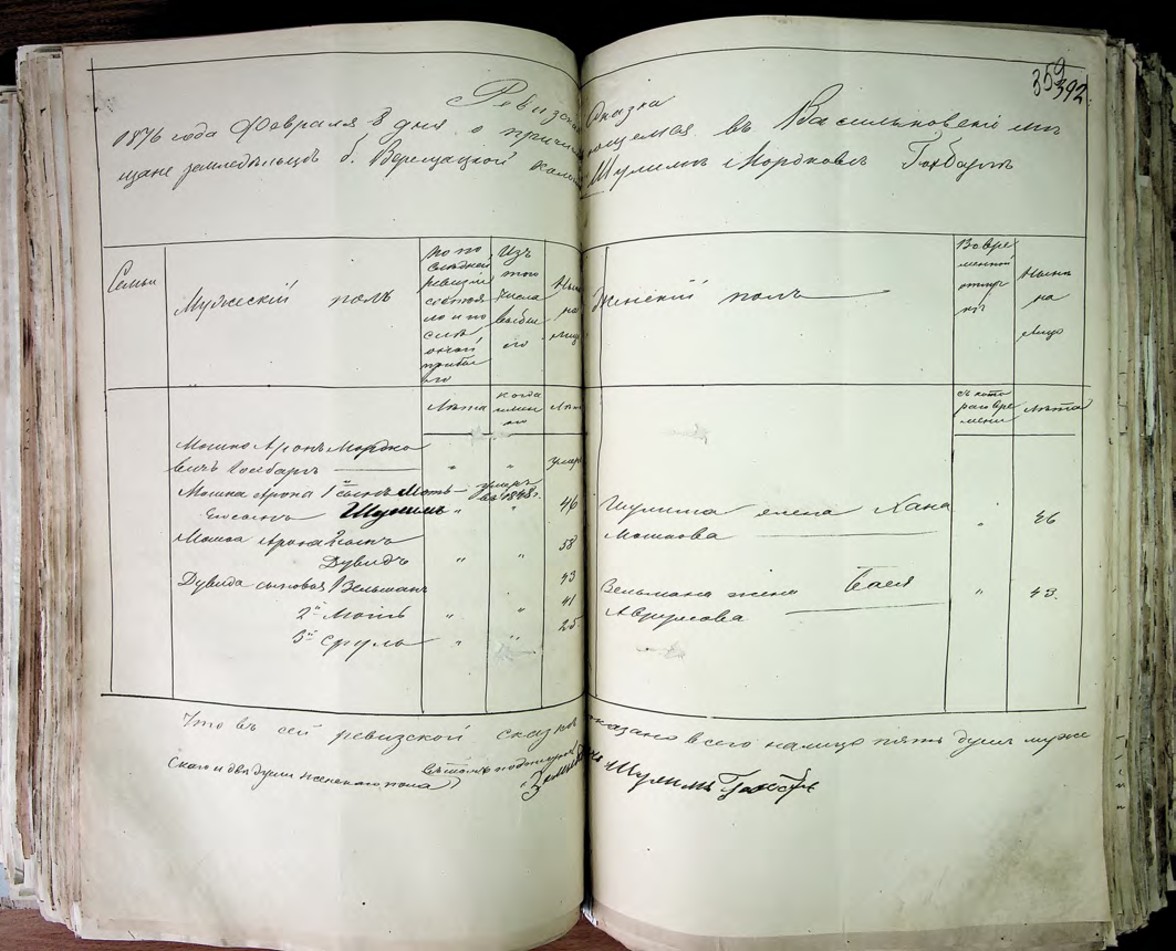 359
392.
Ревизская Сказка
1876 года Февраля 8 дня о причисляющемся въ Васильковскіе мѣ
щане земледѣльцѣ б. Верещацкой колоніи Шулимъ Мордковъ
Семьи
Мужескій полъ
По по
слѣдней
ревизіи
состоя
ло и по
слѣ
оной
прибы
ло
Изъ
того
числа
выбы
ло
Ны
на
лицо
Женскій полъ
Во вре
менной
отлуч
кѣ
Нынѣ
на
лицо
Лѣта
когда
имен
но
Лѣт
съ кото
раго вре
мени
Лѣта
Мошко Аронъ Мордко
вичъ " " умеръ
Мошка Арона 1й сынъ умеръ въ 1848 г.
Шулимъ " " 46
Шулима жена Хана " 46
Мошкова
Мошка Арона 2 сынъ 58
Дувидъ " "
Дувида сыновья 1 Вельман 43
Вельмана жена Бася " 43.
Аврумова
2й " " 41
3й Сруль " " 25
Что въ сей ревизской сказкѣ показано всего на лицо пять душъ муже
скаго и двѣ души женскаго пола въ томъ подписуюсь
Шулимъ